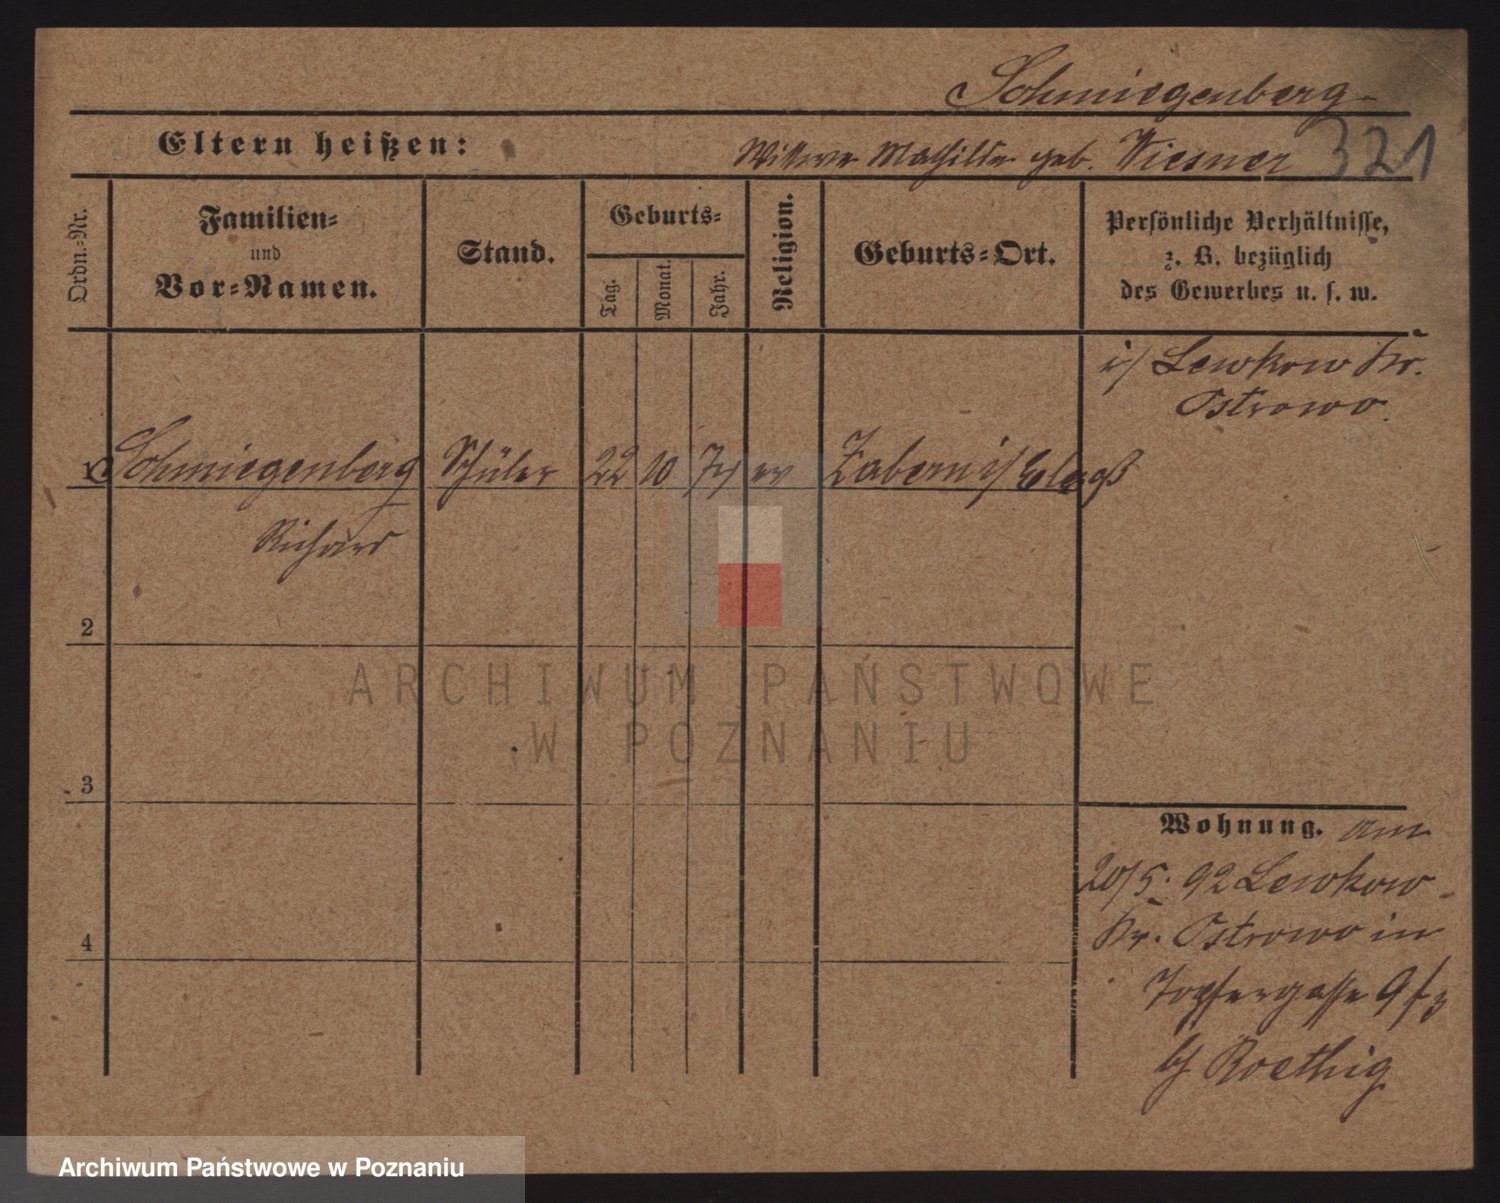 Schmiegenberg
Eltern heißen: Wittwe Mathilde geb. Wiesner 321
Ordn.-Nr.
Familien-
und
Vor-Namen.
Stand.
Geburts-
Tag.
Monat.
Jahr.
Religion.
Geburts-Ort.
Persönliche Verhältnisse,
z. B. bezüglich
des Gewerbes u. s. w.
i/ Lewkow Kr.
Ostrowo.
1 Schmiegenberg Schüler 22 10 74 ev Zabern i/ Elsaß
Richard
2
3
4
Wohnung. am
20/5. 92 Lewkow
Kr. Ostrowo in
Töpfergasse 9
b/ Roethig
ARCHIWUM PAŃSTWOWE
W POZNANIU
Archiwum Państwowe w Poznaniu